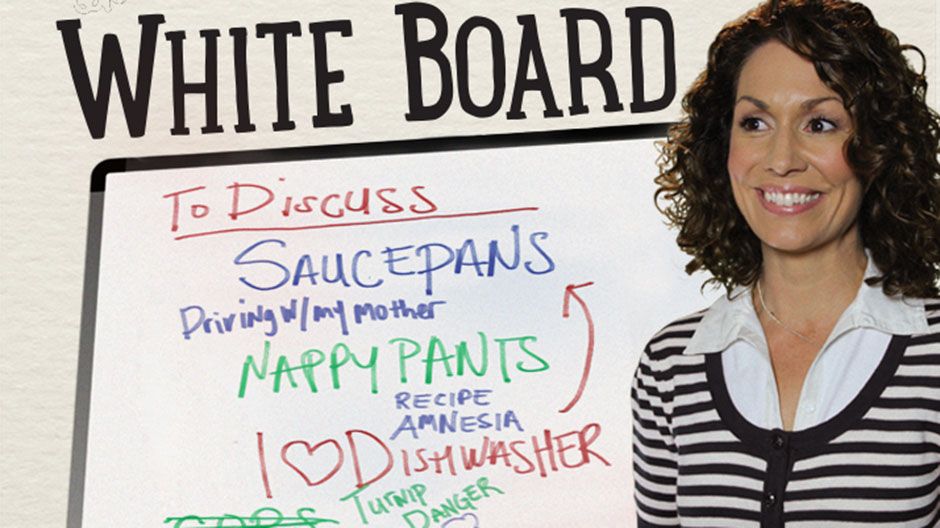 WHITE BOARD
TO DISCUSS
SAUCEPANS
Driving w/my mother
NAPPY PANTS
RECIPE
AMNESIA
I ♡ DISHWASHER
TURNIP
DANGER